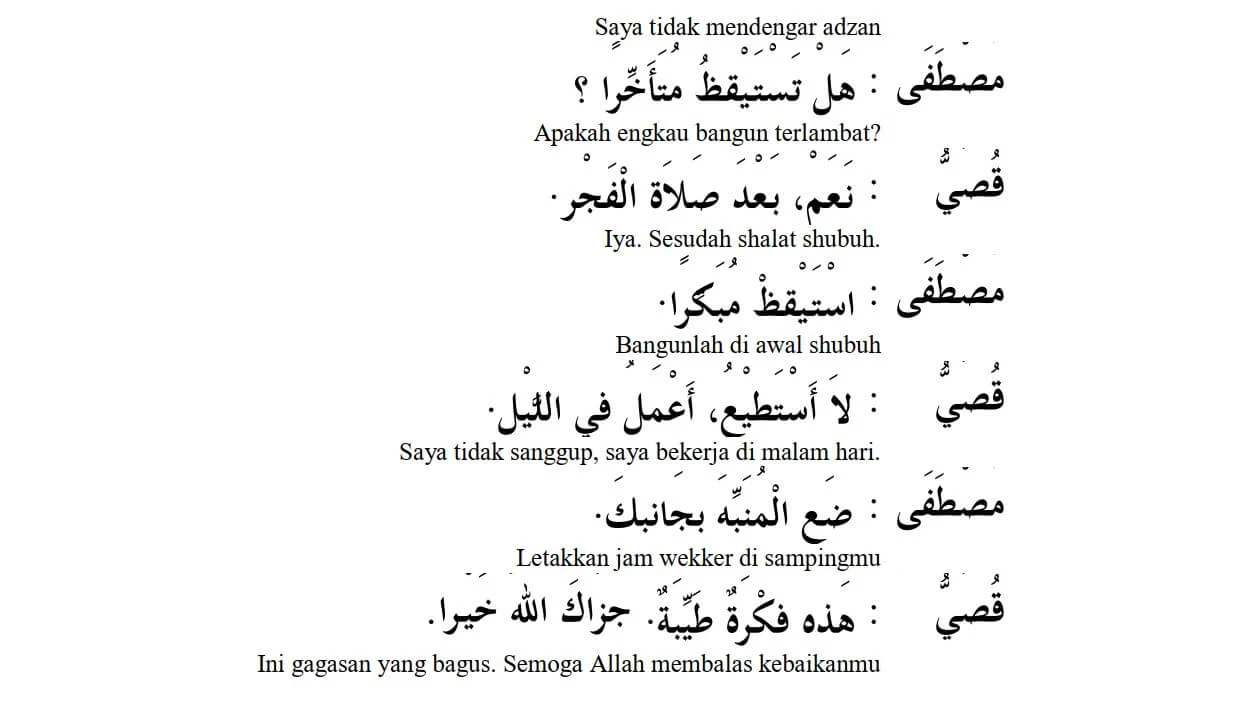 Saya tidak mendengar adzan
مُصْطَفَى : هَلْ تَسْتَيْقِظُ مُتَأَخِّرًا ؟
Apakah engkau bangun terlambat?
قُصَيٌّ : نَعَمْ، بَعْدَ صَلَاةِ الْفَجْرِ.
Iya. Sesudah shalat shubuh.
مُصْطَفَى : اسْتَيْقِظْ مُبَكِّرًا.
Bangunlah di awal shubuh
قُصَيٌّ : لاَ أَسْتَطِيْعُ، أَعْمَلُ فِي اللَّيْلِ.
Saya tidak sanggup, saya bekerja di malam hari.
مُصْطَفَى : ضَعِ الْمُنَبِّهَ بِجَانِبِكَ.
Letakkan jam wekker di sampingmu
قُصَيٌّ : هَذِهِ فِكْرَةٌ طَيِّبَةٌ. جَزَاكَ اللهُ خَيْرًا.
Ini gagasan yang bagus. Semoga Allah membalas kebaikanmu